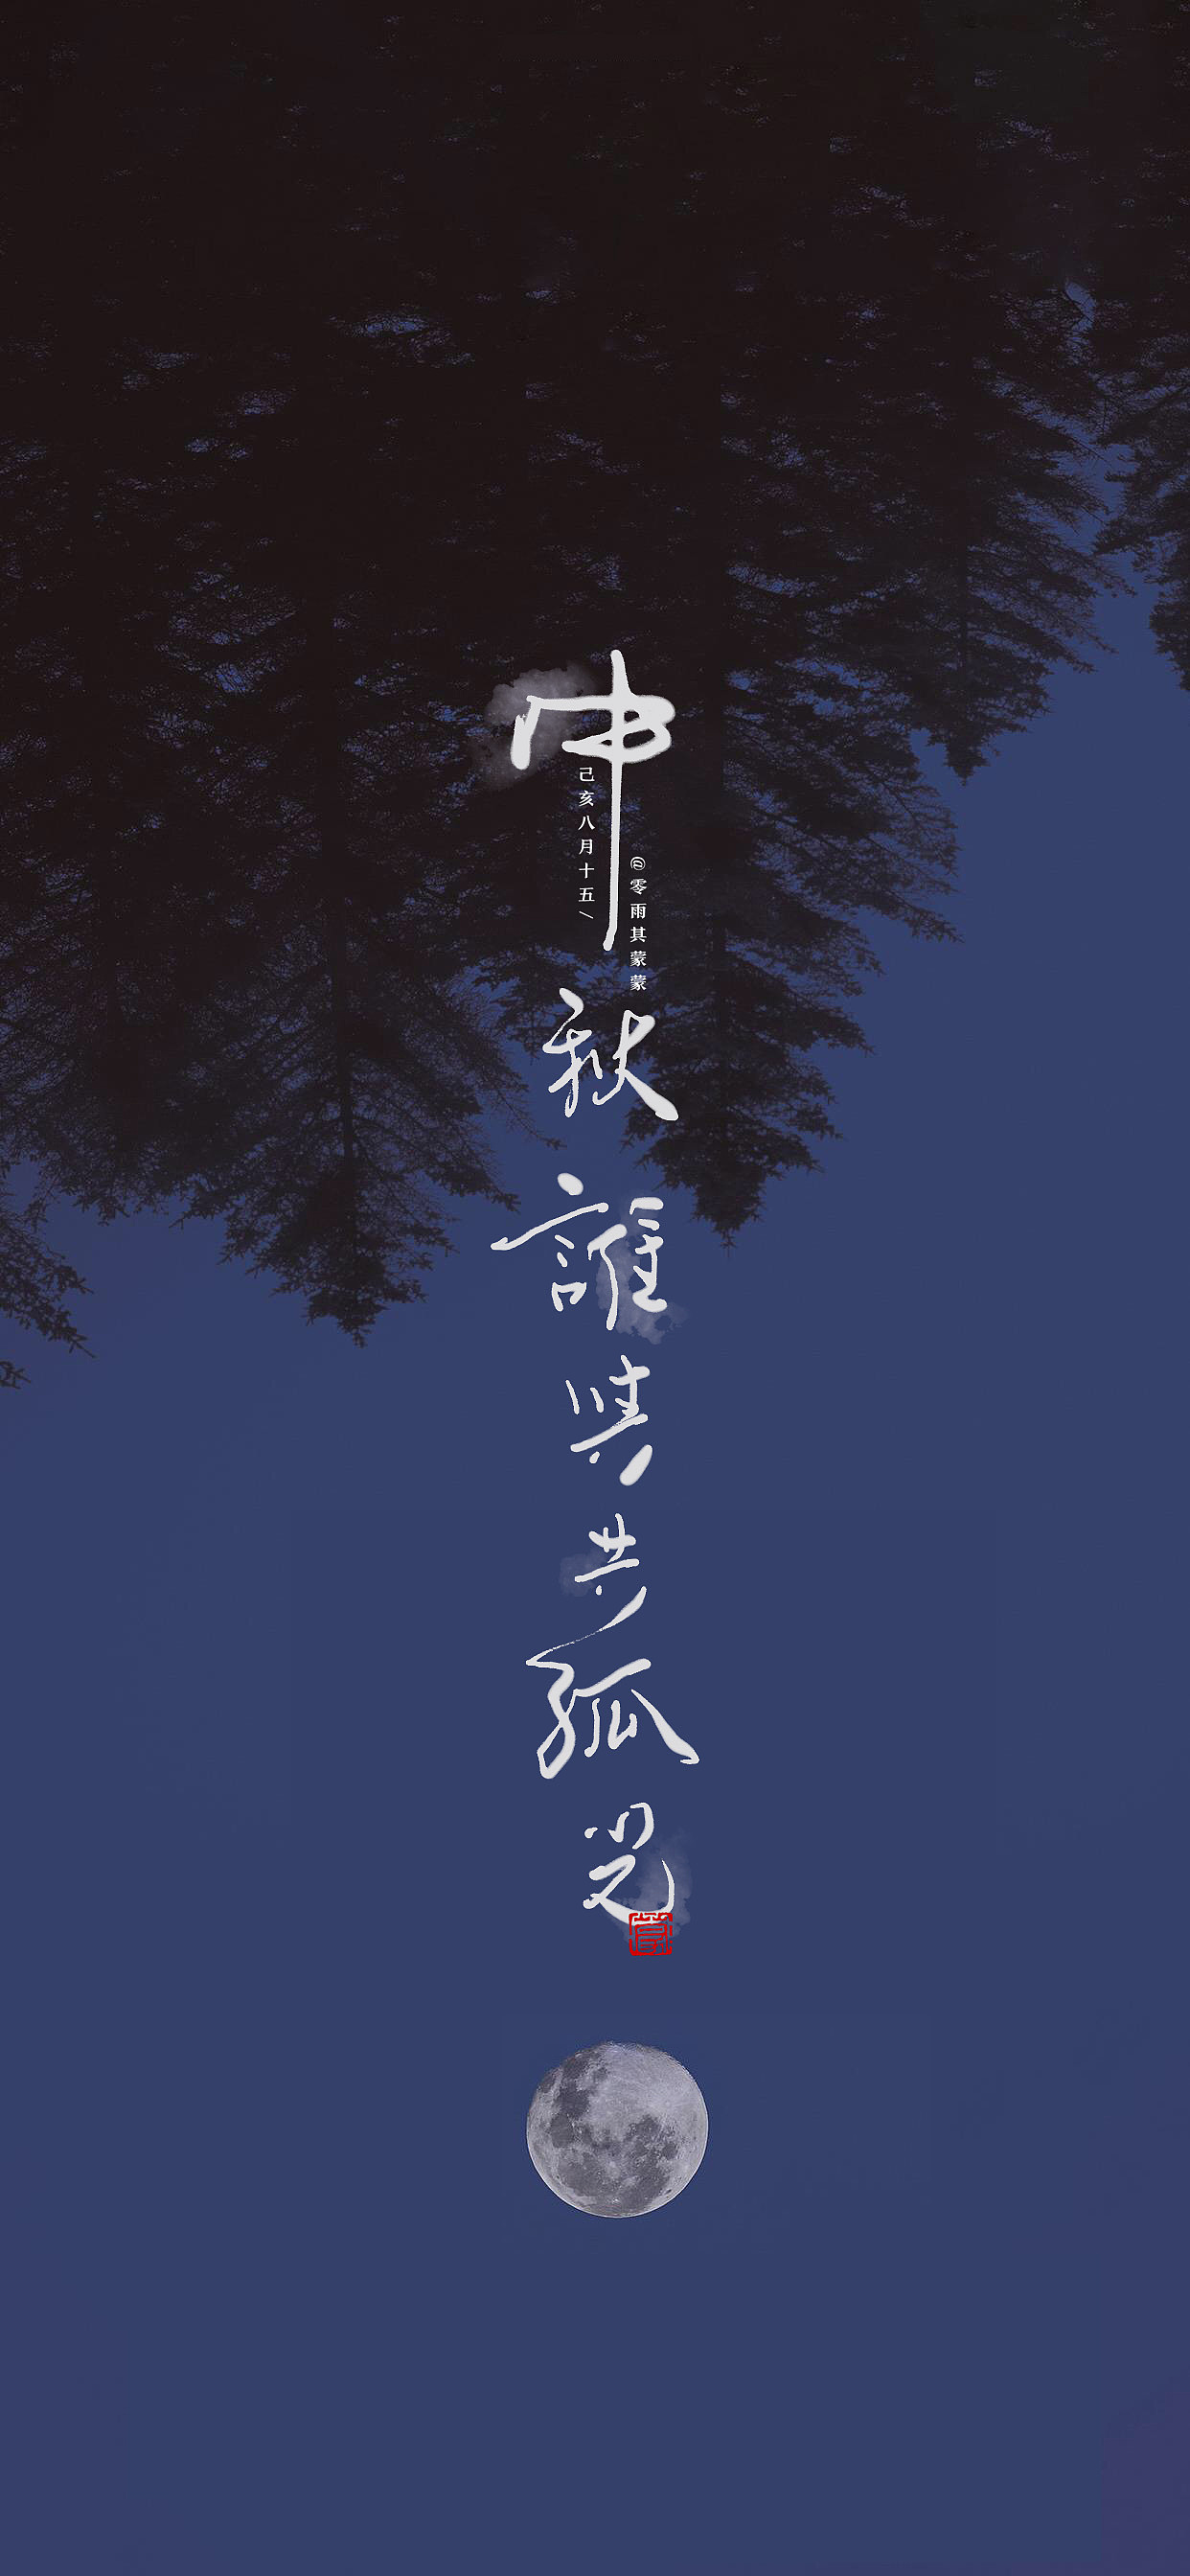 中秋誰與共孤光
己亥八月十五/
@零雨其蒙蒙